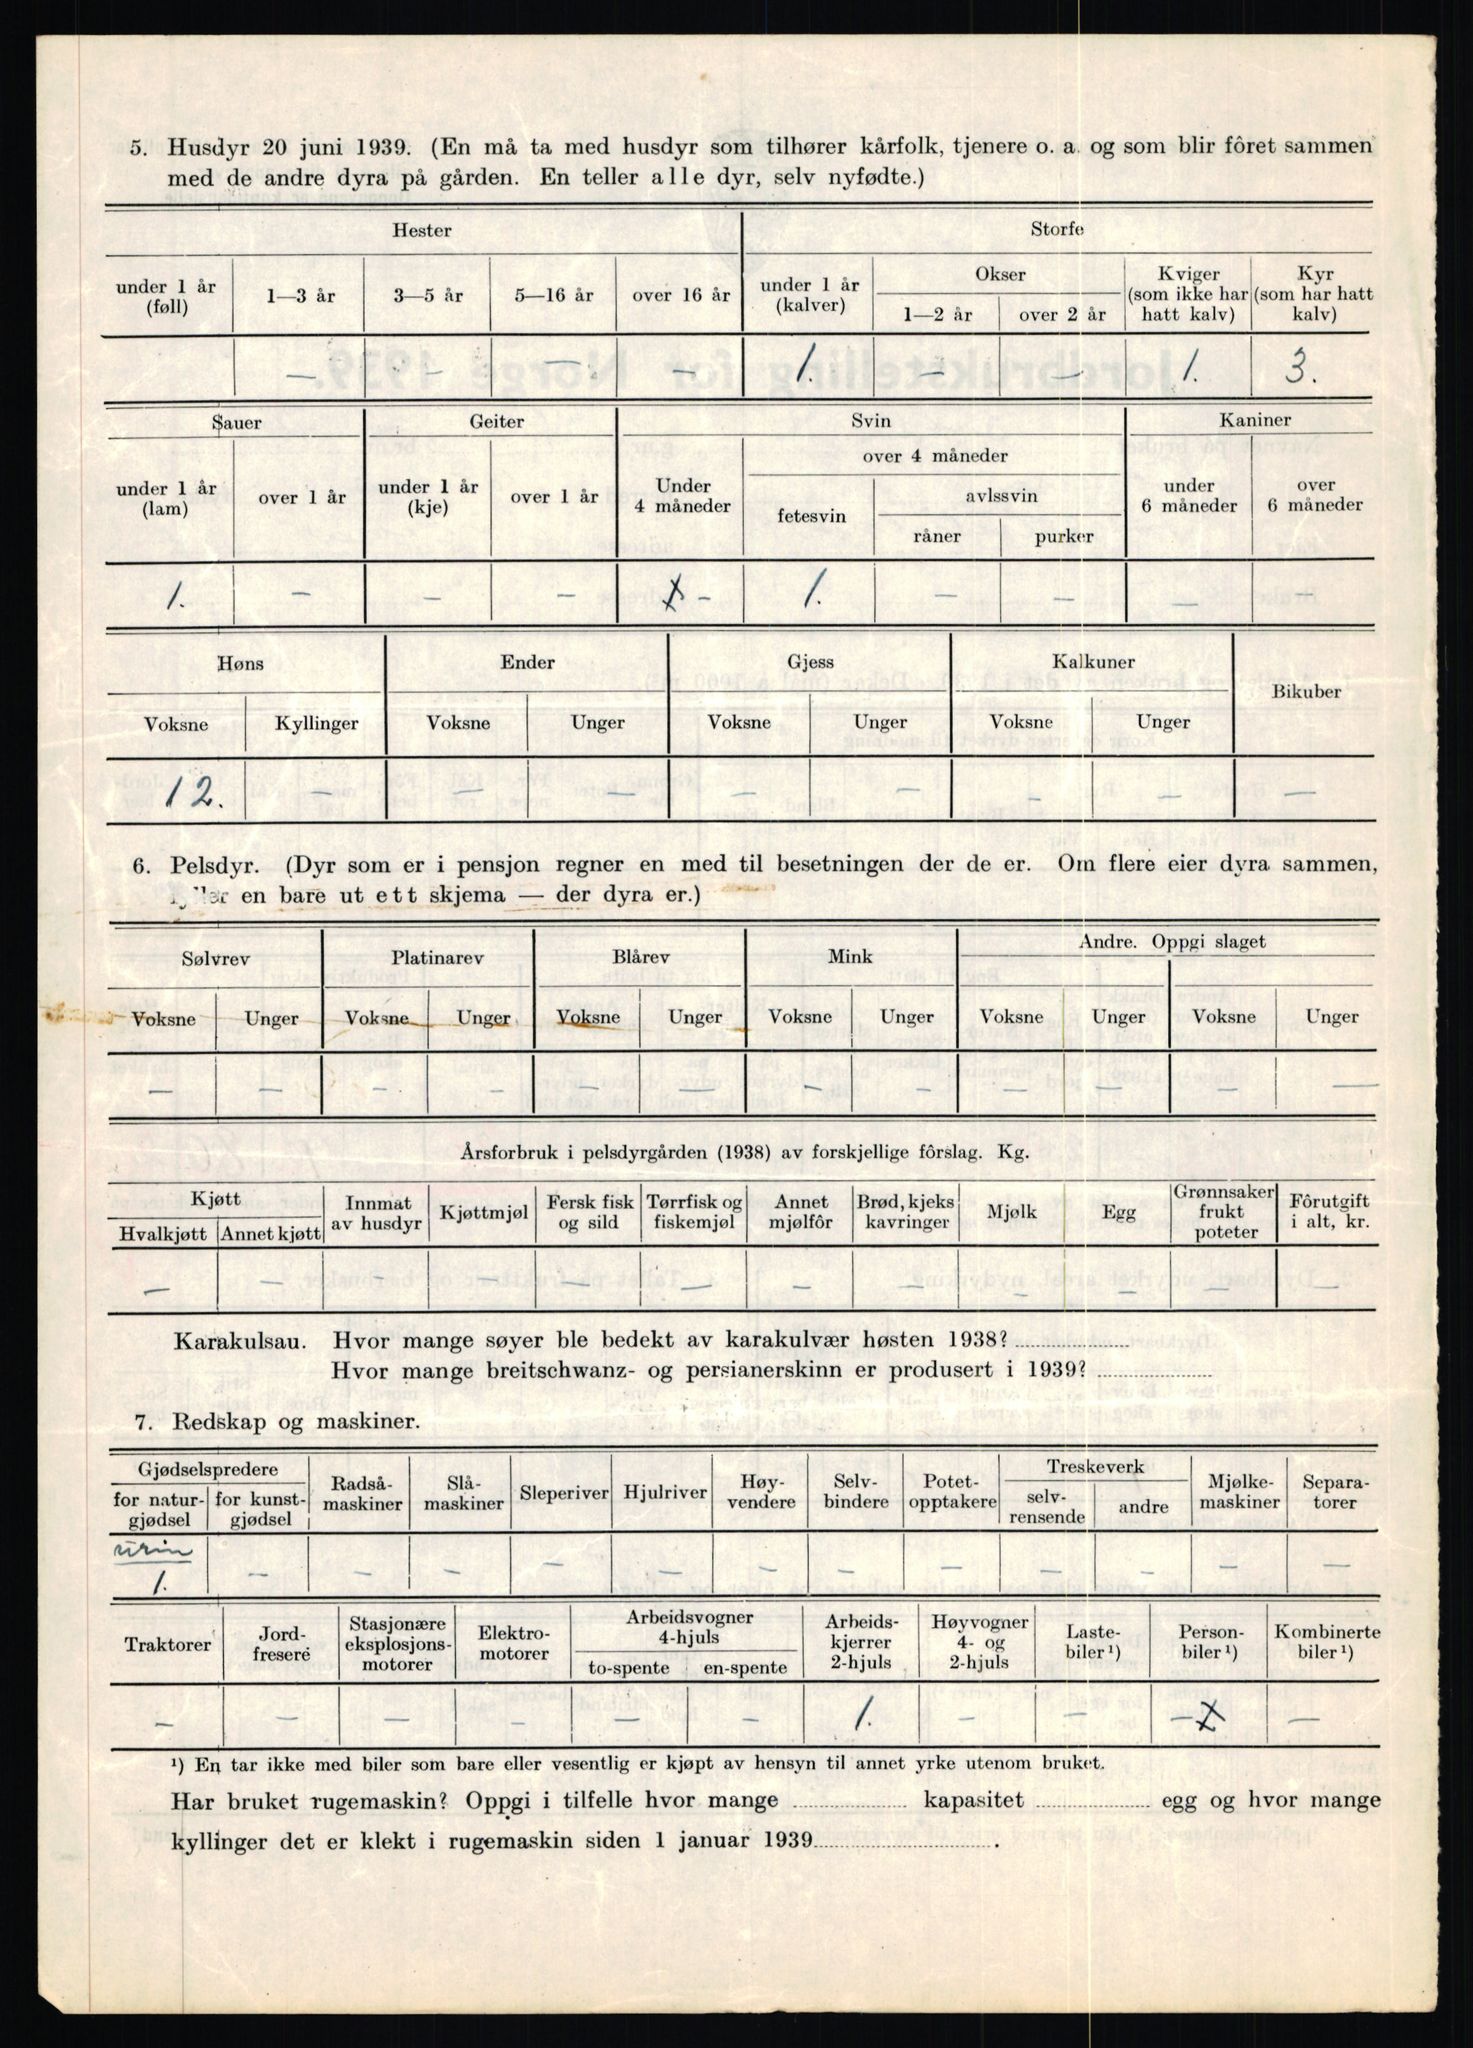 5. Husdyr 20 juni 1939. (En må ta med husdyr som tilhører kårfolk, tjenere o. a. og som blir fôret sammen
med de andre dyra på gården. En teller alle dyr, selv nyfødte.)
Hester Storfe
under 1 år (føll) 1—3 år 3—5 år 5—16 år over 16 år under 1 år (kalver) Okser 1—2 år over 2 år Kviger (som ikke har hatt kalv) Kyr (som har hatt kalv)
— — — — 1. — — 1. 3.
Sauer Geiter Svin Kaniner
under 1 år (lam) over 1 år under 1 år (kje) over 1 år Under 4 måneder over 4 måneder fetesvin avlssvin råner purker under 6 måneder over 6 måneder
1. — — — — 1. — — — —
Høns Ender Gjess Kalkuner Bikuber
Voksne Kyllinger Voksne Unger Voksne Unger Voksne Unger
12. — — — — — — — —
6. Pelsdyr. (Dyr som er i pensjon regner en med til besetningen der de er. Om flere eier dyra sammen,
fyller en bare ut ett skjema — der dyra er.)
Sølvrev Platinarev Blårev Mink Andre. Oppgi slaget
Voksne Unger Voksne Unger Voksne Unger Voksne Unger Voksne Unger Voksne Unger
— — — — — — — — — — — —
Årsforbruk i pelsdyrgården (1938) av forskjellige fôrslag. Kg.
Kjøtt Hvalkjøtt Annet kjøtt Innmat av husdyr Kjøttmjøl Fersk fisk og sild Tørrfisk og fiskemjøl Annet mjølfôr Brød, kjeks kavringer Mjølk Egg Grønnsaker frukt poteter Fôrutgift i alt, kr.
— — — — — — — — — — — —
Karakulsau. Hvor mange søyer ble bedekt av karakulvær høsten 1938?
Hvor mange breitschwanz- og persianerskinn er produsert i 1939?
7. Redskap og maskiner.
Gjødselspredere for natur-gjødsel for kunst-gjødsel Radså-maskiner Slå-maskiner Sleperiver Hjulriver Høy-vendere Selv-bindere Potet-opptakere Treskeverk selv-rensende andre Mjølke-maskiner Separa-torer
urin
1. — — — — — — — — — — — —
Traktorer Jord-fresere Stasjonære eksplosjons-motorer Elektro-motorer Arbeidsvogner 4-hjuls to-spente en-spente Arbeids-kjerrer 2-hjuls Høyvogner 4- og 2-hjuls Laste-biler ¹) Person-biler ¹) Kombinerte biler ¹)
— — — — — — 1. — — — —
¹) En tar ikke med biler som bare eller vesentlig er kjøpt av hensyn til annet yrke utenom bruket.
Har bruket rugemaskin? Oppgi i tilfelle hvor mange kapasitet egg og hvor mange
kyllinger det er klekt i rugemaskin siden 1 januar 1939 .